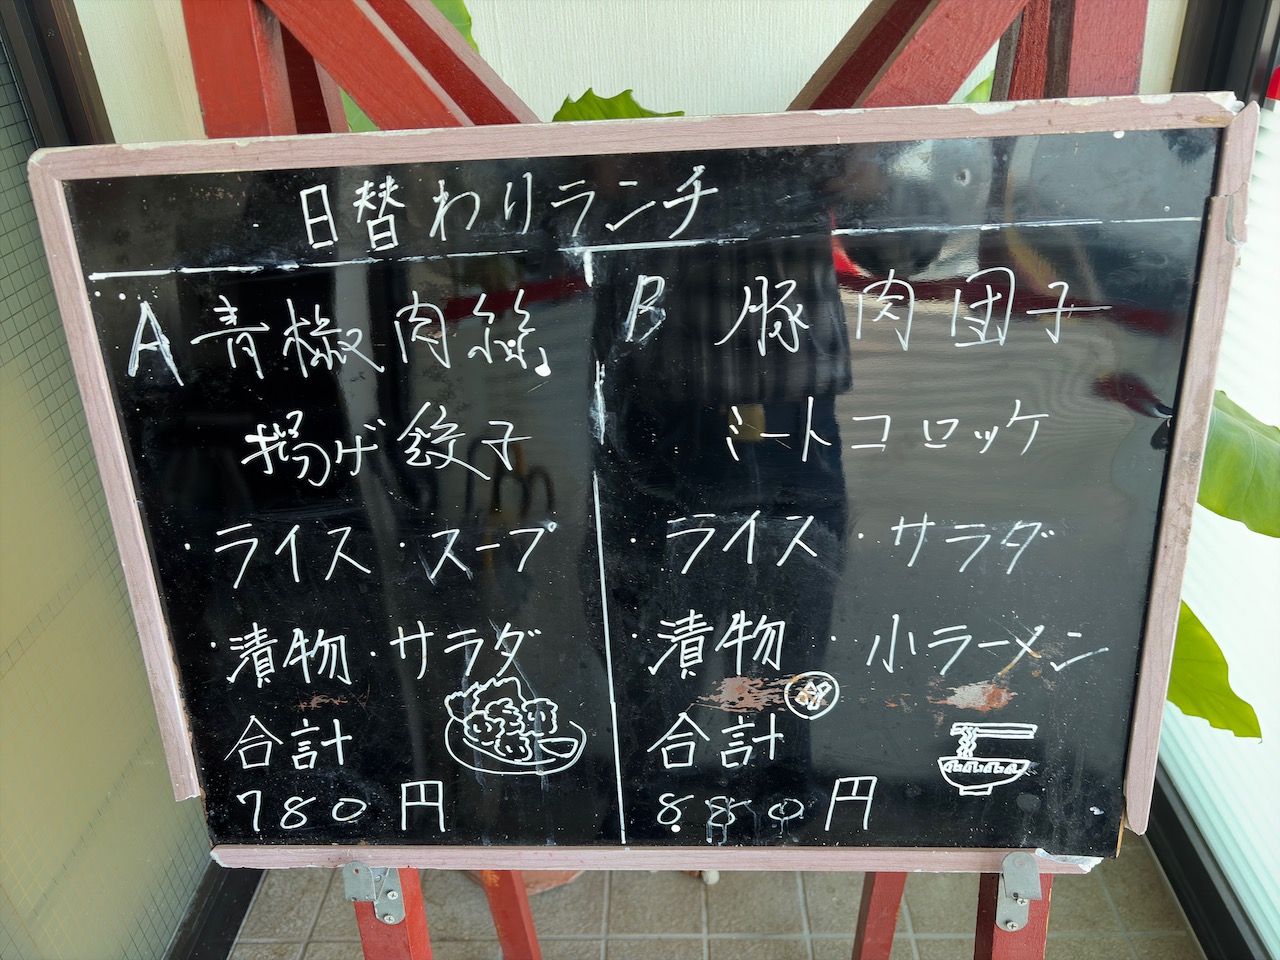 日替わりランチ
A 青椒肉絲
揚げ餃子
・ライス・スープ
・漬物・サラダ
合計
780円
B 豚肉団子
ミートコロッケ
・ライス・サラダ
・漬物・小ラーメン
合計
880円